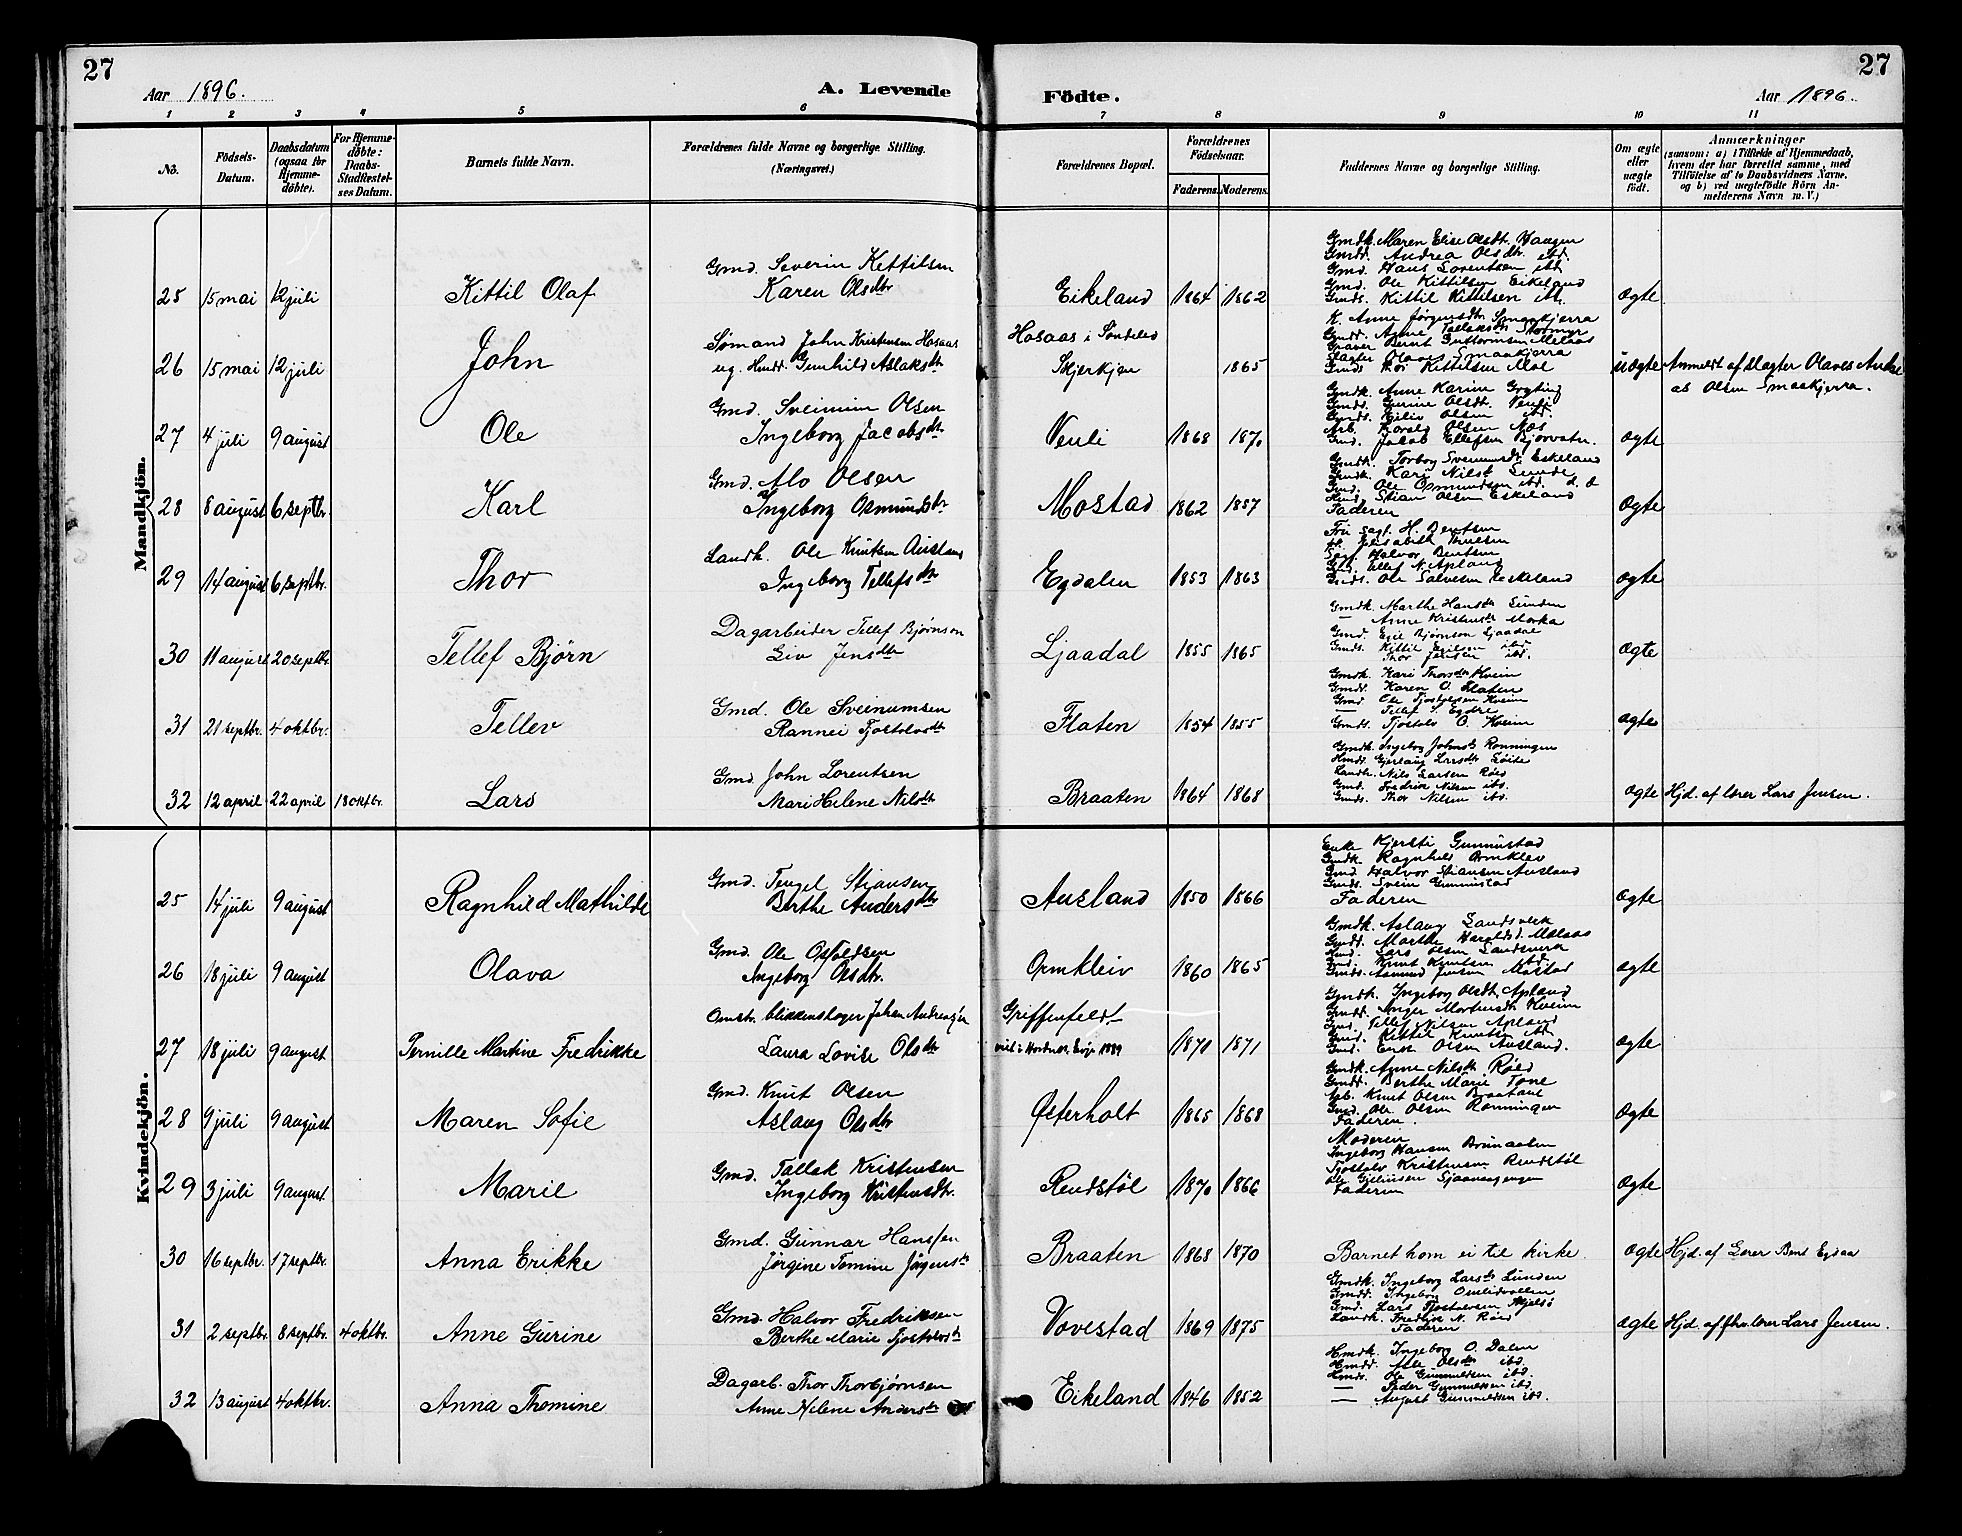 27
Aar 1896.
A. Levende
Födte.
Aar 1896.
27
1 2 3 4 5 6 7 8 9 10 11
No.
Födsels-Datum.
Daabsdatum (ogsaa for Hjemme-döbte).
For Hjemme-döbte: Daabs-Stadfæstel-ses Datum.
Barnets fulde Navn.
Forældrenes fulde Navne og borgerlige Stilling. (Næringsvei.)
Forældrenes Bopæl.
Forældrenes Födselsaar.
Faderens. Moderens.
Faddernes Navne og borgerlige Stilling.
Om ægte eller uægte födt.
Anmærkninger
(saasom: a) i Tilfælde af Hjemmedaab, hvem der har forrettet samme, med Tilföielse af to Daabsvidners Navne, og b) ved uægtefödte Börn An-melderens Navn m. V.)
Mandkjön.
25 15 mai 12 juli Kittil Olaf
Gmd. Severin Kettilsen
Karen Olsdtr
Eikeland 1864 1862
Gmdk. Maren Elise Olsdtr. Haugen
Gmdd. Andrea Olsdtr. ibd.
Gmd. Hans Lorentsen ibd.
Gmd. Ole Kittilsen Eikeland
Gmds. Kittil Kittilsen ib.
ægte
26 15 mai 12 juli John
Sømand John Kristensen Hosaas
ug. Hmdd. Gunhild Aslaksdtr
Hosaas i Søndeled
Skjerkjen 1865
K. Anne Jørgensdtr Smaakjerra
Gmdd. Anne Tallaksdtr Stormyr
Graver Bernt Guttormsen Melaas
Slagter Olaves Smaakjerra
Gmds Thor Kittilsen Moe
uægte Anmeldt af slagter Olaves Andre
as Olsen Smaakjerra.
27 4 juli 9 august Ole
Gmd. Sveinum Olsen
Ingeborg Jacobsdtr
Venli 1868 1870
Gmdk. Anne Karine
Gmdd. Gurine Olsdt. Venli
Gmds. Eiliv Olsen ibd.
Arb. Torsld Olsen Næs
Gmd. Jakob Ellefsen Bjorvatn.
ægte
28 8 august 6 septbr. Karl
Gmd. Alo Olsen
Ingeborg Osmundsdtr
Mostad 1862 1857
Gmdk. Torborg Sveinumsdt. Eskeland
Gmdk. Kari Nilsd. Lunde
Gmd. Ole Osmundsen ibd.
Hmd. Stian Olsen Eskeland
Faderen
ægte
29 14 august 6 septbr. Thor
Landh. Ole Knutsen Ausland
Ingeborg Tellefsdtr
Egdalen 1853 1863
Fru sagf. H. Bentsen
Sagf. Halvor Bentsen
Gmd. Tellef N. Apland
Gmds. Ole Salvesen Heskeland
ægte
30 11 august 20 septbr. Tellef Bjørn
Dagarbeider Tellef Bjørnson
Liv Jensdtr
Ljaadal 1855 1865
Gmdk. Marthe Hansdtr Lunden
— Anne Kristensdtr Morka
Gmd. Egil Bjørnson Ljaadal
Gmds. Kittil Egilsen ibd
Thor Jensen ibd.
ægte
31 21 septbr. 4 oktbr. Tellev
Gmd. Ole Sveinumsen
Rannei Tjostolvsdtr
Flaten 1854 1855
Gmdk. Kari Thorsdtr Kveim
Gmdd. Karen O. Flaten
Gmd. Ole Tjostolvsen Kveim
— Tellef S. Egdre
Gmds. Tjostolv O. Kveim
ægte
32 12 april 22 april 18 oktbr. Lars
Gmd. John Lorentsen
Mari Helene Nilsdtr
Braaten 1864 1868
Gmdk. Ingeborg Johnsd. Rønningen
Hmdd. Gjerlaug Larsdtr Løite
Landh. Nils Larsen Røed
Gmd. Fredrik Nilsen ibd.
Gmds. Thor Nilsen ibd.
ægte Hjd. af lærer Lars Jensen.
Kvindekjön.
25 14 juli 9 august Ragnhild Mathilde
Gmd. Tengel Stiansen
Berthe Andersdtr
Ausland 1850 1866
Enke Kjersti Gunnustad
Gmdk. Ragnhild Ormklev
Gmd Halvor Stiansen Ausland
Gmds. Svein Gunnustad
Faderen
ægte
26 18 juli 9 august Olava
Gmd. Ole Osfoldsen
Ingeborg Olsdtr.
Ormkleiv 1860 1865
Gmdk. Aslaug Landsverk
Gmdd. Marthe Haroldsd. Mælaas
Gmd. Lars Olsen Landsverk
Gmd. Knut Knutsen ibd.
Gmds. Aamund Jensen Mostad
ægte
27 18 juli 9 august Pernille Martine Fredrikke
Omstr. blikkenslager Johan Andreas
Laura Lovise Olsdtr
Griffenfeldt
1870 1871
Gmdk. Ingeborg Olsdt. Apland
Gmdd. Inger Mortensdt Kveim
Gmd. Tellef Nilsen Apland
Gmd. Kittil Knutsen
Gmd. Enok Olsen Ausland.
ægte
28 9 juli 9 august Maren Sofie
Gmd. Knut Olsen
Aslaug Olsdtr
Østerholt 1865 1868
Gmdk. Anne Nilsdt. Røed
Gmdd. Berthe Marie Tone
Arb. Knut Olsen Braatane
Gmd. Ole Olsen Rønningen
Faderen.
ægte
29 3 juli 9 august Marie
Gmd. Tallak Kristensen
Ingeborg Kristensdtr.
Rendstøl 1870 1866
Moderen
Ingeborg Hansen Brunaaten
Tjostolv Kristensen Rendstøl
Faderen
ægte
30 16 septbr. 17 septbr. Anna Erikke
Gmd. Gunnar Hanssen
Jørgine Tomine Jørgensdtr
Braaten 1868 1870
Barnet kom ei til kirke.
ægte Hjd. af Lærer Bent Egdaa
31 2 septbr. 8 septbr. 4 oktbr. Anne Gurine
Gmd. Halvor Fredriksen
Berthe Marie Tjostolvsdtr
Vovestad 1869 1875
Gmdk. Ingeborg Larsdtr Lunden
Gmdd. Ingeborg Omlidvollen
Gmd. Lars Tjostolvsen Mjelsø
Landh. Fredrik N. Røed
Faderen
ægte Hjd. af fhv. lærer Lars Jensen.
32 13 august 4 oktbr. Anna Thomine
Dagarb. Thor Thorbjørnsen
Anne Helene Andersdtr
Eikeland 1846 1852
Hmdk. Ingeborg O. Dalen
Hmdd. Asle Olsdtr ibd.
Hmds. Ole Gunnuldsen ibd.
— Peder Gunnuldsen ibd.
— August Gunnuldsen ibd.